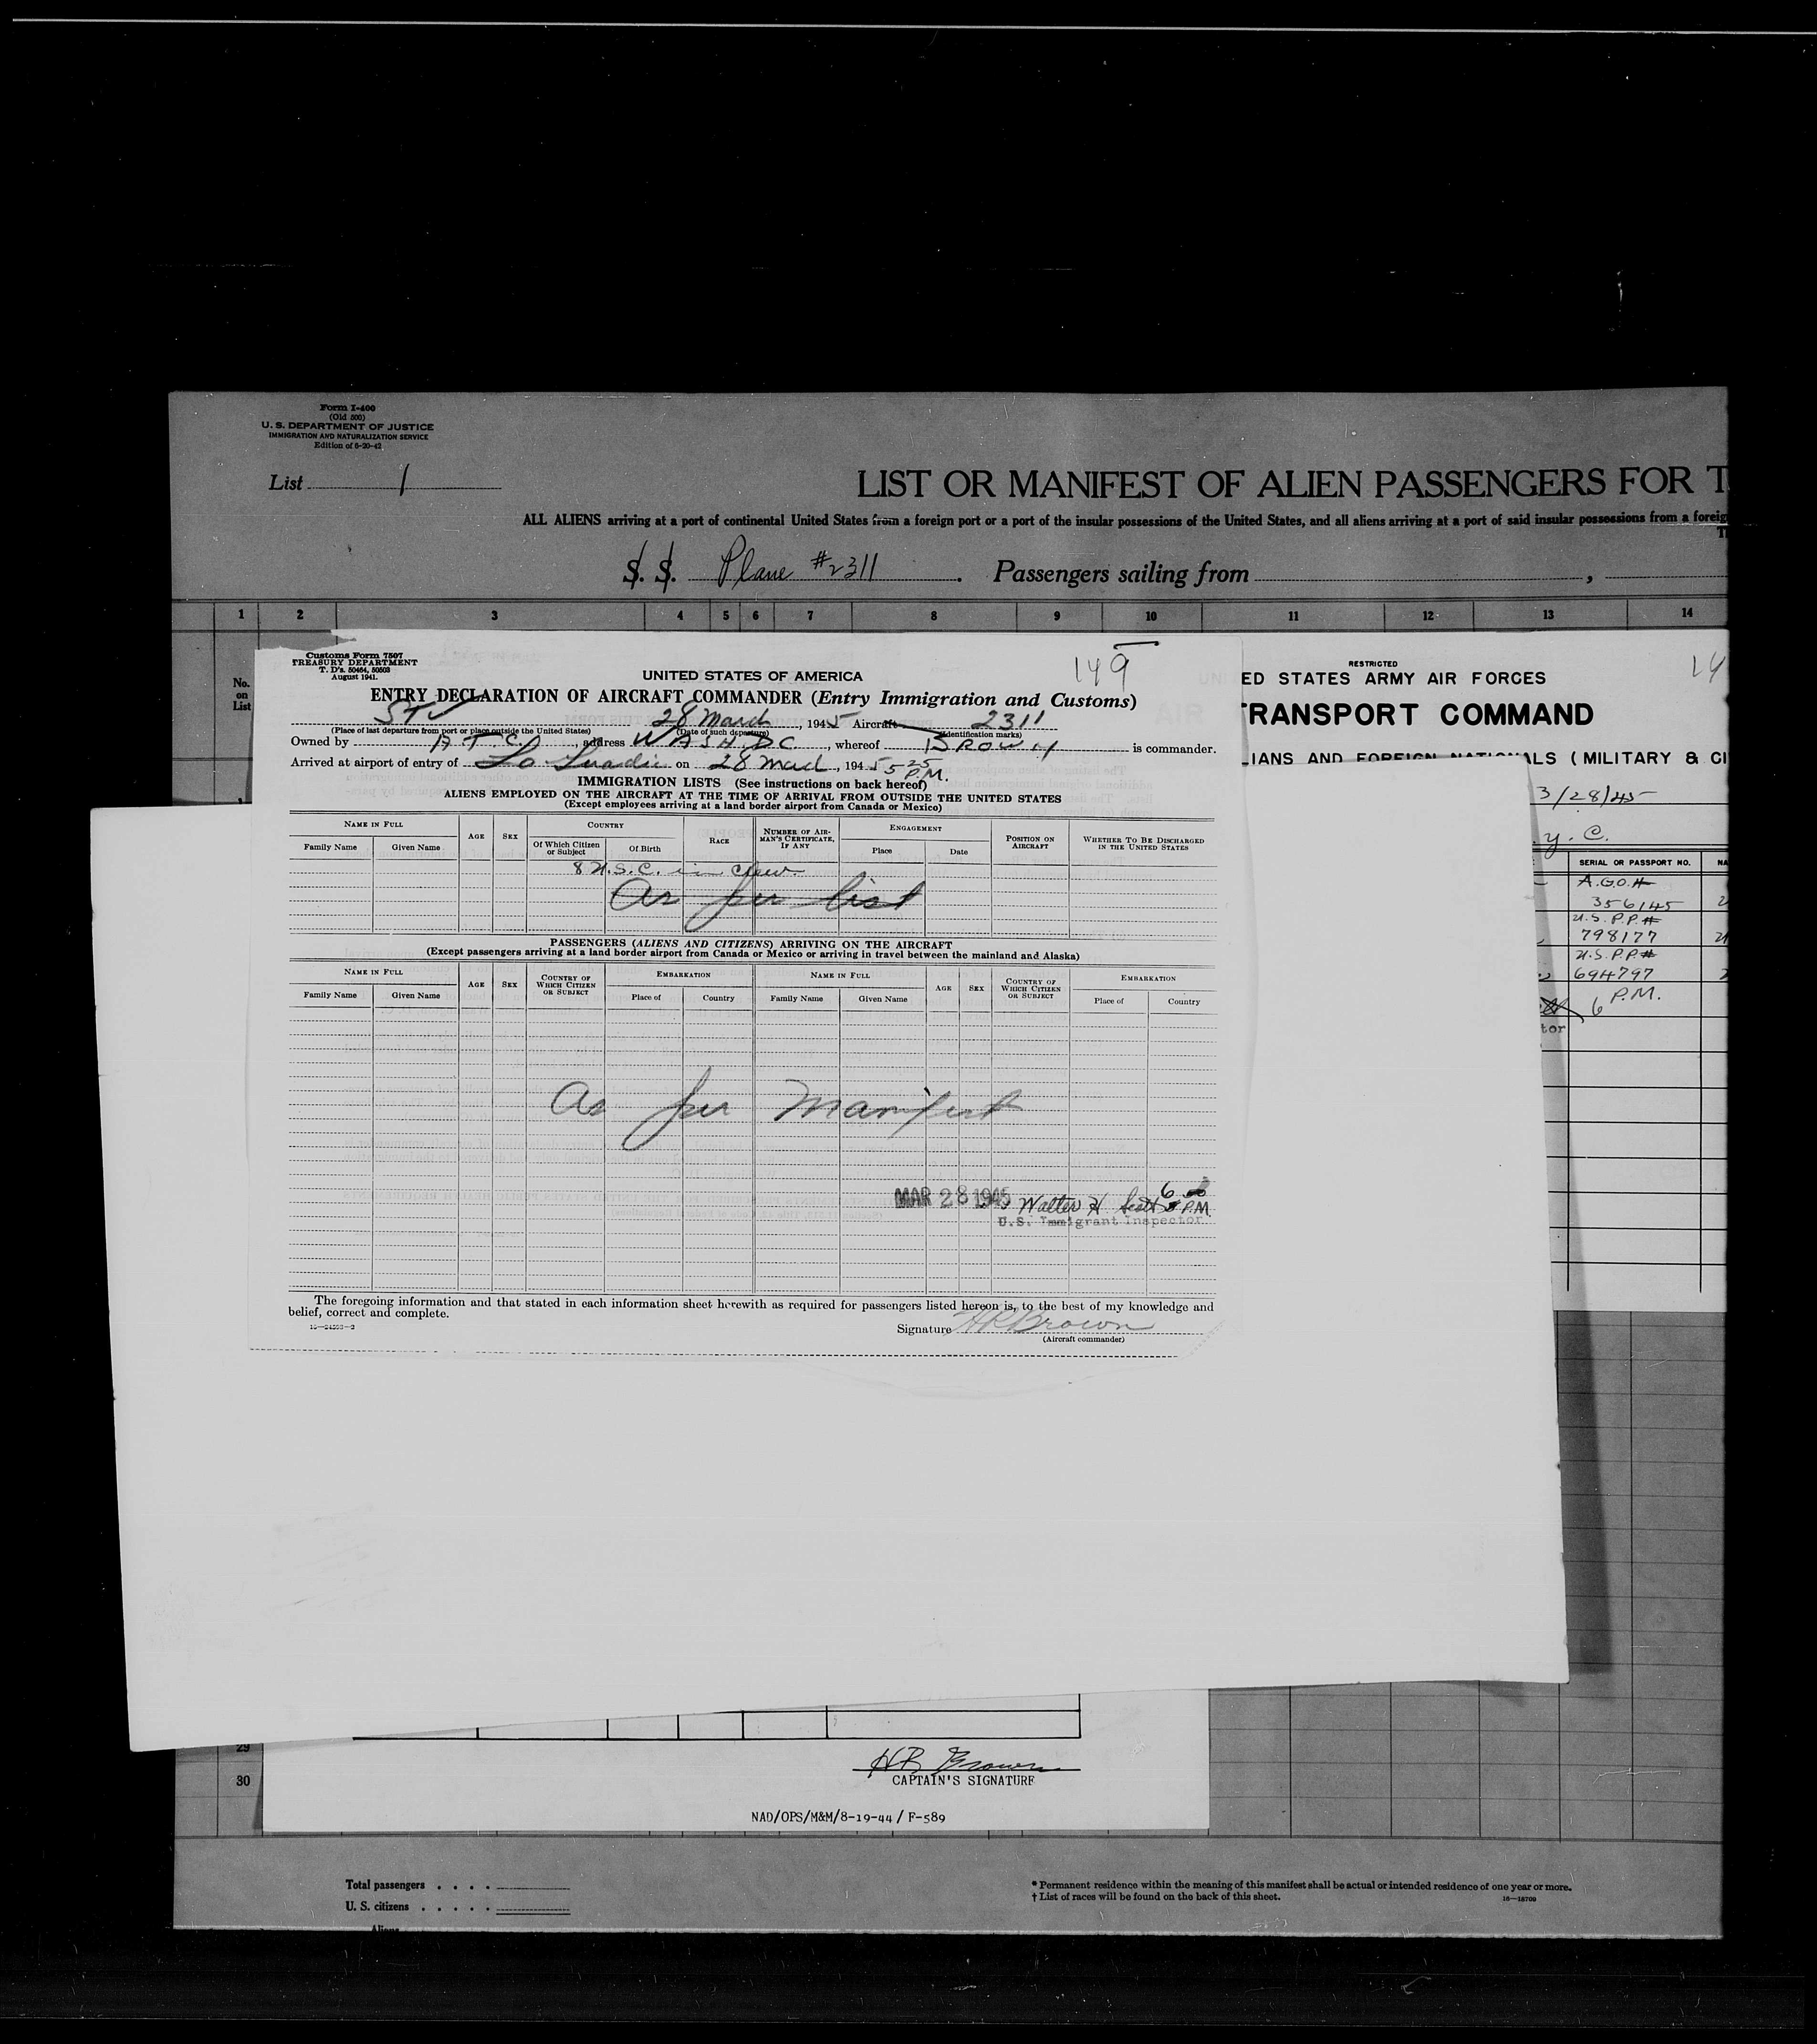 Form I-400
(Old 500)
U. S. DEPARTMENT OF JUSTICE
IMMIGRATION AND NATURALIZATION SERVICE
Edition of 8-20-42
List 1
LIST OR MANIFEST OF ALIEN PASSENGERS FOR T
ALL ALIENS arriving at a port of continental United States from a foreign port or a port of the insular possessions of the United States, and all aliens arriving at a port of said insular possessions from a foreig
T
S. S. Plane #2311 . Passengers sailing from ,
1 2 3 4 5 6 7 8 9 10 11 12 13 14
No.
on
List
Customs Form 7507
TREASURY DEPARTMENT
T. D's. 50464, 50503
August 1941.
149
UNITED STATES OF AMERICA
ENTRY DECLARATION OF AIRCRAFT COMMANDER (Entry Immigration and Customs)
28 March, 1945 Aircraft 2311
(Place of last departure from port or place outside the United States) (Date of such departure) (Identification marks)
Owned by A T C, address WASH DC, whereof BROWN is commander.
Arrived at airport of entry of La Guardia on 28 March, 1945 5 25 P.M.
IMMIGRATION LISTS (See instructions on back hereof)
ALIENS EMPLOYED ON THE AIRCRAFT AT THE TIME OF ARRIVAL FROM OUTSIDE THE UNITED STATES
(Except employees arriving at a land border airport from Canada or Mexico)
NAME IN FULL AGE SEX COUNTRY RACE NUMBER OF AIRMAN'S CERTIFICATE, IF ANY ENGAGEMENT POSITION ON AIRCRAFT WHETHER TO BE DISCHARGED IN THE UNITED STATES
Family Name Given Name Of Which Citizen or Subject Of Birth Place Date
8 U.S.C. in crew
As per list
PASSENGERS (ALIENS AND CITIZENS) ARRIVING ON THE AIRCRAFT
(Except passengers arriving at a land border airport from Canada or Mexico or arriving in travel between the mainland and Alaska)
NAME IN FULL AGE SEX COUNTRY OF WHICH CITIZEN OR SUBJECT EMBARKATION NAME IN FULL AGE SEX COUNTRY OF WHICH CITIZEN OR SUBJECT EMBARKATION
Family Name Given Name Place of Country Family Name Given Name Place of Country
As per Manifest
MAR 28 1945 Walter H. Scott 6 P.M.
U.S. Immigrant Inspector
The foregoing information and that stated in each information sheet herewith as required for passengers listed hereon is, to the best of my knowledge and
belief, correct and complete.
Signature HR Brown
(Aircraft commander)
RESTRICTED
14
ED STATES ARMY AIR FORCES
TRANSPORT COMMAND
LIANS AND FOREIGN NATIONALS (MILITARY & CI
3/28/45
y. C.
SERIAL OR PASSPORT NO. NA
A.G.O.#
356145
U.S.P.P.#
798177
U.S.P.P.#
694797
6 P.M.
tor
29
30
HR Brown
CAPTAIN'S SIGNATURE
NAD/OPS/M&M/8-19-44 / F-589
Total passengers . . . .
U. S. citizens . . . . .
Aliens
* Permanent residence within the meaning of this manifest shall be actual or intended residence of one year or more.
† List of races will be found on the back of this sheet.